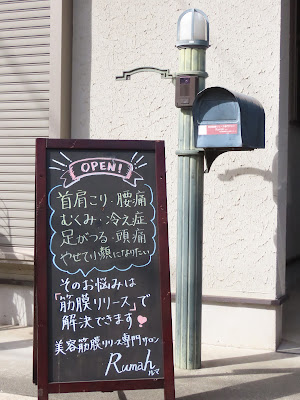 OPEN!
首肩こり・腰痛
むくみ・冷え症
足がつる・頭痛
やせて小顔になりたい
そのお悩みは
「筋膜リリース」で
解決できます
美容筋膜リリース専門サロン
Rumah
ルマ